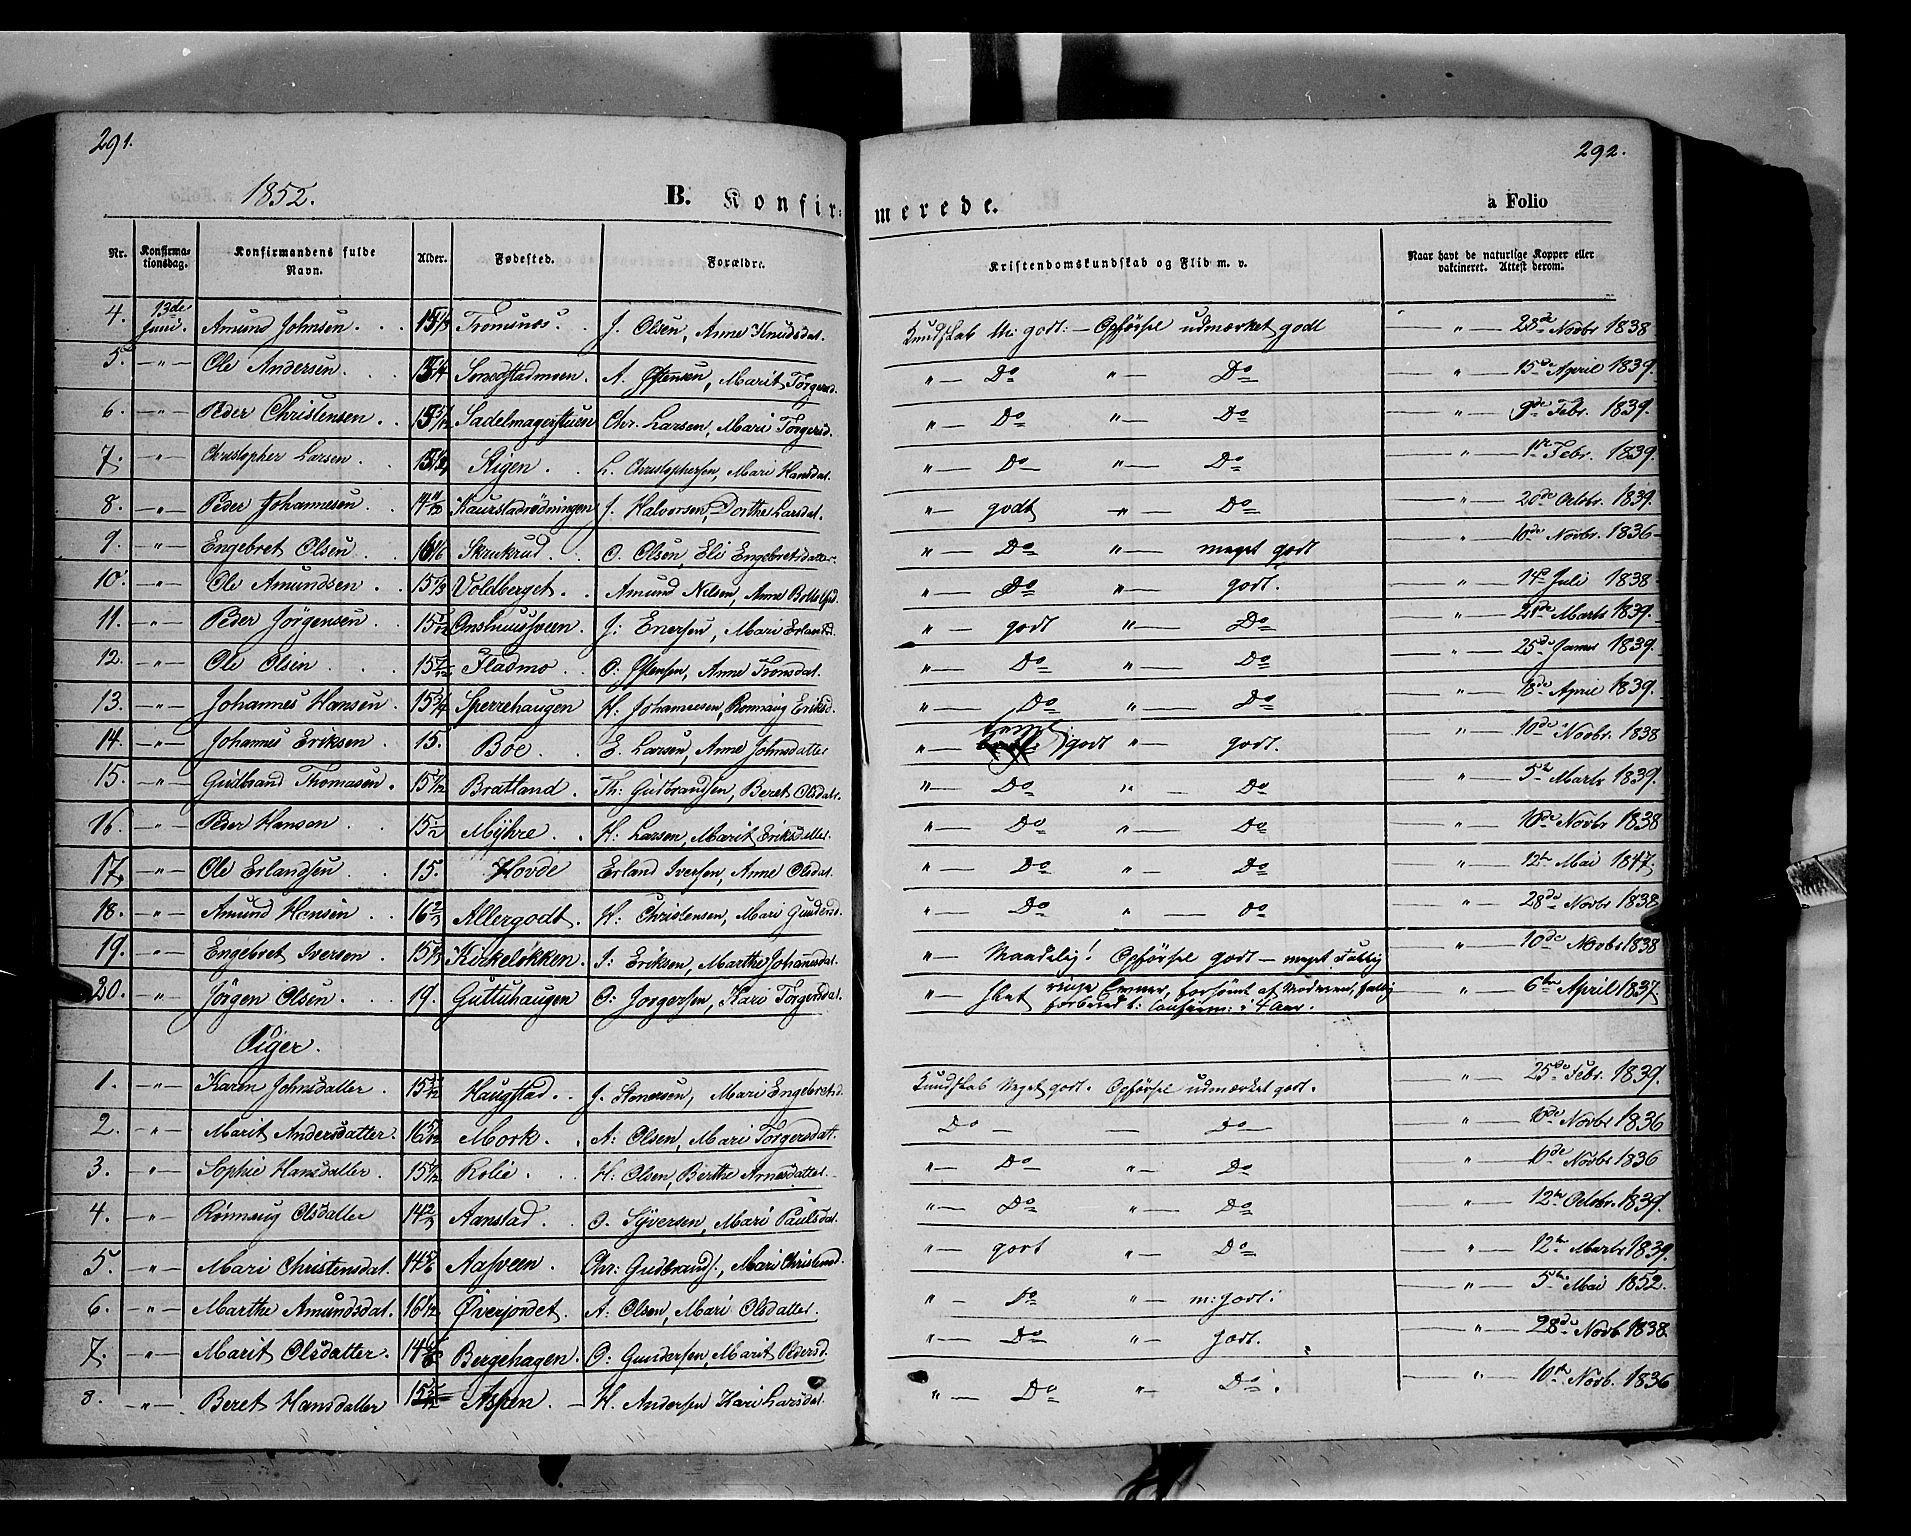 291.
292.
1852.
B. Konfir-
merede.
a Folio
Nr. Konfirma-tionsdag. Konfirmandens fulde Navn. Alder. Fødested. Forældre. Kristendomskundskab og Flid m. v. Naar havt de naturlige Kopper eller vaktineret. Attest derom.
4. 13de Juni. Amund Johnsen . . . Tromsnæs. J. Olsen, Anne Knudsdat. Kundskab M: godt: — Opförsel udmærket godt — " — 28de Novbr 1838
5. — " — Ole Andersen . . . A. Østensen, Marit Torgersd. " — Do " — Do — " — 15de April 1839.
6. — " — Peder Christensen . . Sadelmagerstuen Chr. Larsen, Mari Torgersd. " — Do " — Do — " — 9de Febr. 1839.
7. — " — Christopher Larsen . Stigen . . L. Christophersen, Mari Hansdat. " — Do — " — Do — " — 1ste Febr. 1839.
8. — " — Peder Johannesen . . 14 Kaurstadrödningen J. Halvorsen, Dorthe Larsdat. " — godt — " — Do — " — 20de Octbr. 1839.
9. — " — Engebret Olsen . . 16 1/6 Skrukrud . . O. Olsen, Eli Engebretsdatter " — Do " — meget godt — " — 10de Novbr. 1836
10. — " — Ole Amundsen . . 15 1/3 Voldberget . . Amund Nilsen, Anne " — Do " — godt. — " — 14de Juli 1838
11. — " — Peder Jörgensen . . J: Enersen, Mari Erlandsd. " — godt " — Do — " — 21de Marts 1839.
12. — " — Ole Olsen . . . 15 7/12 Fladmo . . O: Østensen, Anne Tronsdat. " — Do " — Do — " — 25de Januar 1839.
13. — " — Johannes Hansen . 15 3/4 Sperrehaugen H: Johannesen, Rönnaug Eriksd. " — Do " — Do — " — 18de April 1839.
14. — " — Johannes Eriksen . 15. Böe . . E. Larsen, Anne Johnsdatter " — godt " — godt. — " — 10de Novbr. 1838
15. — " — Gudbrand Thomasen . 15 Bratland . Th: Gudbrandsen, Beret Olsdat. " — Do " — Do — " — 5te Marts 1839.
16. — " — Peder Hansen . . 15 Myhre . . H: Larsen, Marit Eriksdatter " — Do " — Do — " — 10de Novbr 1838
17. — " — Ole Erlandsen . . 15. Hovde Erland Iversen, Anne Olsdat. " — Do " — Do — " — 12te Mai 1847.
18. — " — Amund Hansen . . 16 2/3 Allergodt . H: Christensen, Mari Gundersd. " — Do " — do — " — 28de Novbr 1838
19. — " — Engebret Iversen . . 15 1/3 Kirkelökken . I: Eriksen, Marthe Johannesdat. " — Maadelig! Opförsel godt — meget Fattig — " — 10de Novbr 1838
20. — " — Jörgen Olsen . . 19. Guttuhaugen O: Jorgersen, Kari Torgersdat. " — slet ringe Evner, forsömt af Moderen, fattig forberedt t: Confirm: i 4 Aar. — " — 6te April 1837
Piger.
1. — " — Karen Johnsdatter . 15 Haugstad . . J. Stenersen, Mari Engebretsd. Kundskab Meget godt. Opförsel udmærket godt. — " — 25de Febr. 1839.
2. — " — Marit Andersdatter. 16 Mork . . A: Olsen, Mari Torgersdat. Do — — Do — — " — 10de Novbr 1836
3. — " — Sophie Hansdatter . 15 Kolie . . . H: Olsen, Berthe Arnesdatter. " — Do " — Do — " — 10de Novbr 1836
4. — " — Rönnaug Olsdatter 14 2/3 Aanstad . . O. Syversen, Mari Paulsdat. " — Do " — Do — " — 12te Octbr. 1839.
5. — " — Mari Christensdat. 14 5/6 Aasveen . Chr: Gudbrands., Mari Christensd. " — godt " — Do — " — 12te Marts 1839.
6. — " — Marthe Amundsdat. 16 1/12 Överjordet . A: Olsen, Mari Olsdatter. " — Do " — m: godt: — " — 5te Mai 1852.
7. — " — Marit Olsdatter . 14 Bergehagen . O: Gundersen, Marit Pedersd. " — Do " — godt. — " — 28de Novb 1838.
8. — " — Beret Hansdatter 15 Aspen . H. Andersen Kari Larsdat. " — Do " — Do. — " — 10de Novb. 1836